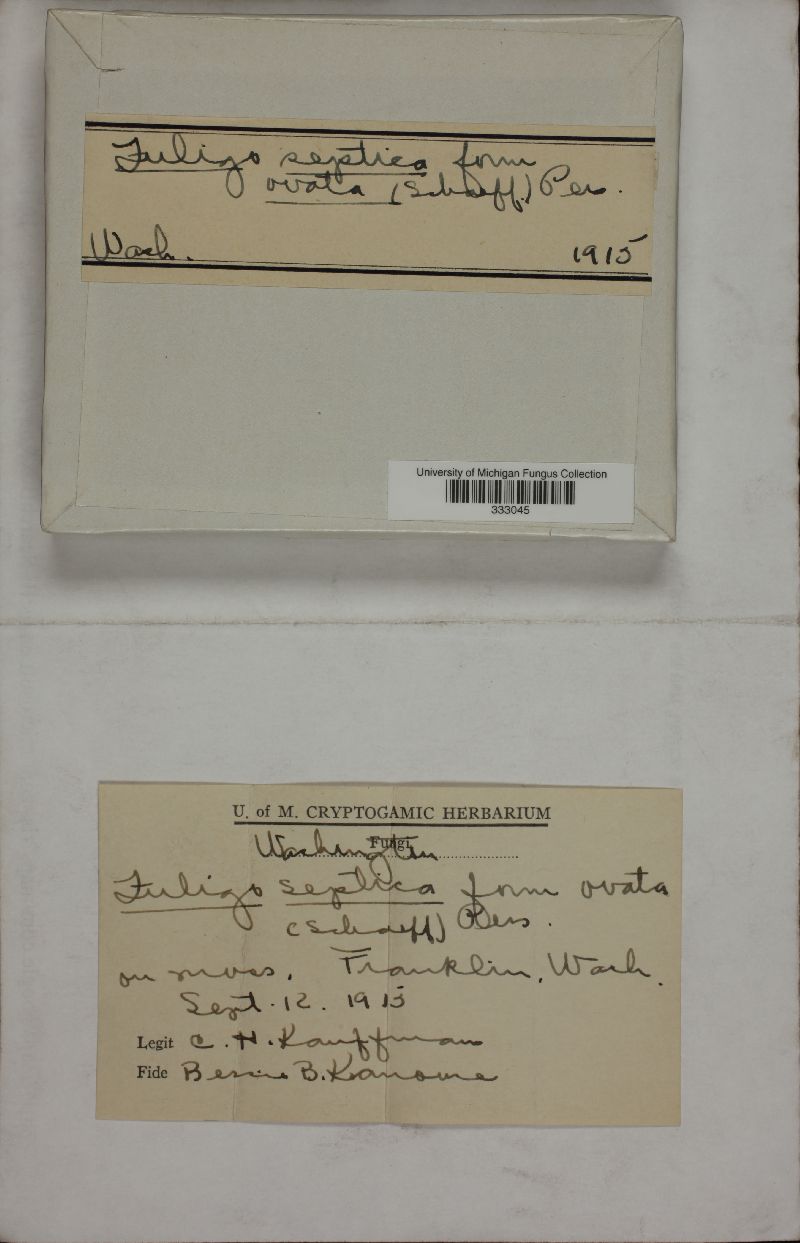 Fuligo septica form
ovata (Schaeff.) Pers.
Wash. 1915
University of Michigan Fungus Collection
333045
U. of M. CRYPTOGAMIC HERBARIUM
Fungi
Washington
Fuligo septica form ovata
(Schaeff) Pers.
on moss, Franklin, Wash.
Sept. 12. 1915
Legit C. H. Kauffman
Fide Bessie B. Kanouse